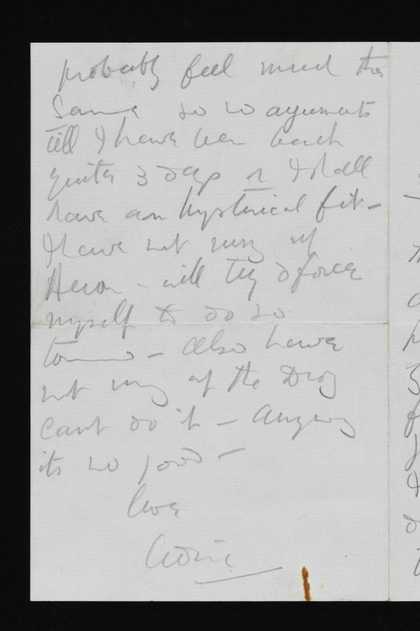 probably feel much the
same so no arguments
till I have been back
quite 3 days or I shall
have an hysterical fit -
I have not rung up
- will try & force
myself to do so
- also have
not rung up the
cant do it - anyway
its no good -
love